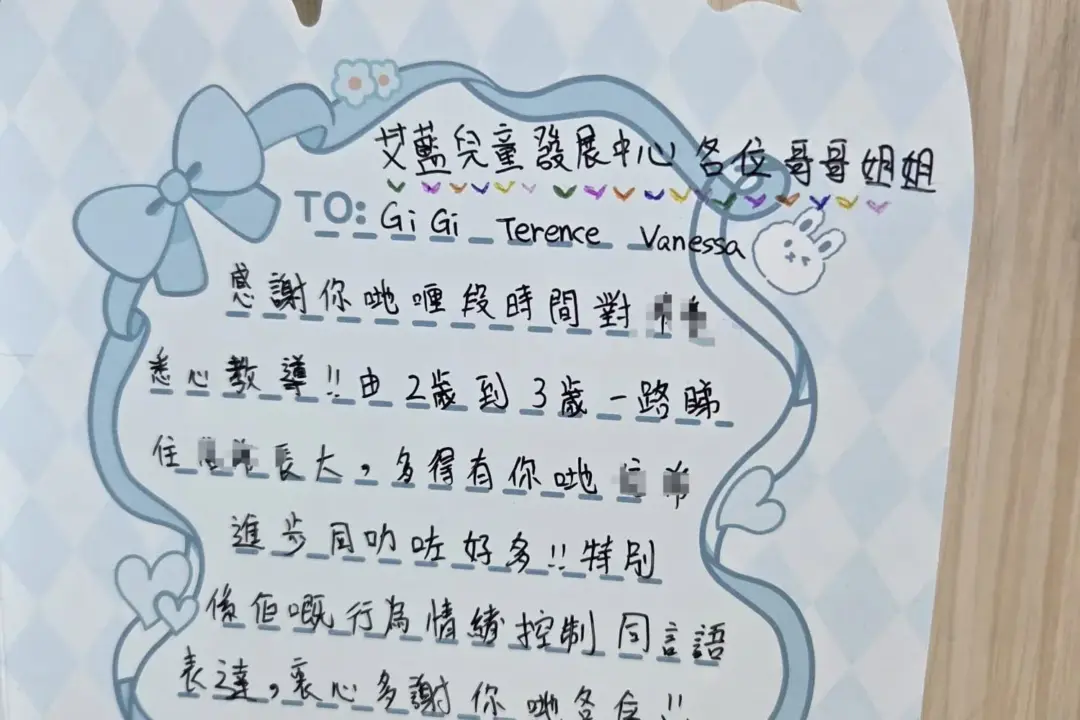 艾藍兒童發展中心各位哥哥姐姐
TO: GiGi Terence Vanessa
感謝你哋喱段時間對
悉心教導!!由2歲到3歲一路睇
住 長大，多得有你哋
進步同叻咗好多!!特別
係佢嘅行為情緒控制同言語
表達，衷心多謝你哋各位!!